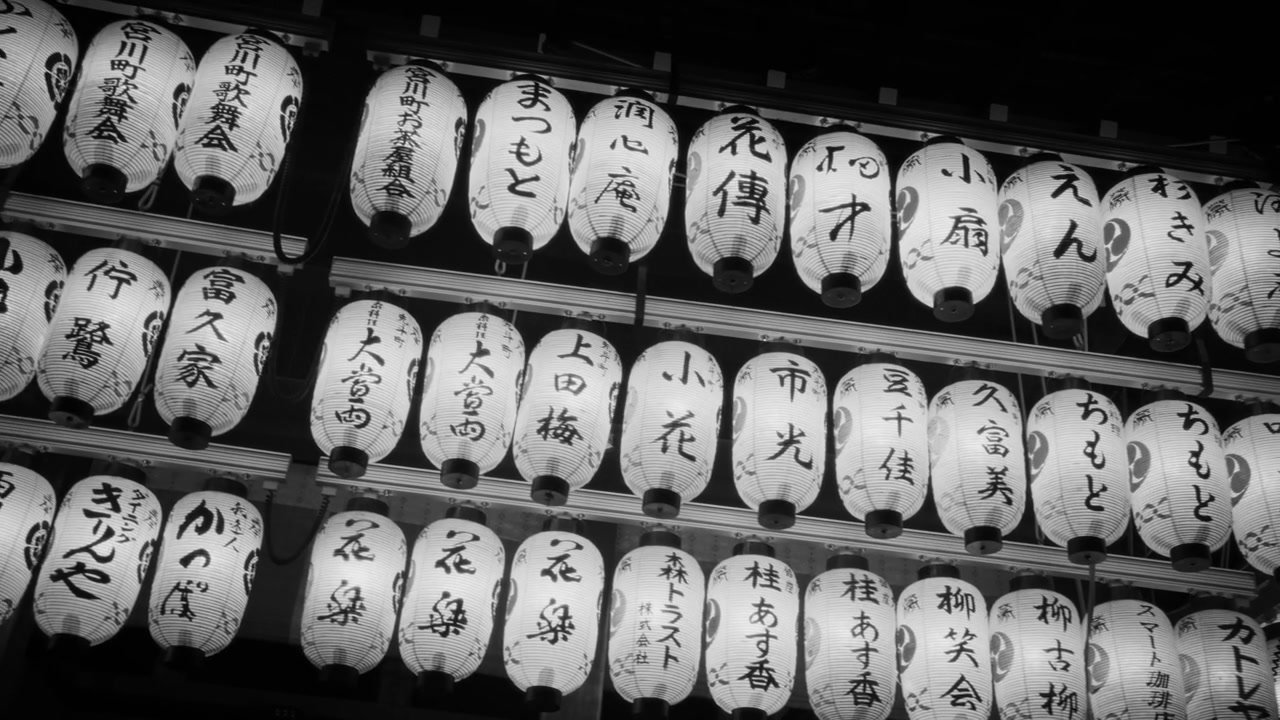 宮川町歌舞会
宮川町歌舞会
宮川町お茶屋組合
まつもと
润心庵
花傳
小扇
えん
杉きみ
佇鷺
富久家
大當両
大當両
上田梅
小花
市光
豆千佳
久富美
ちもと
ちもと
ダイニング
きりんや
かつぽ
花梁
花梁
花梁
森トラスト
株式会社
桂あす香
桂あす香
柳笑会
柳古柳
スマート珈琲
カトレヤ